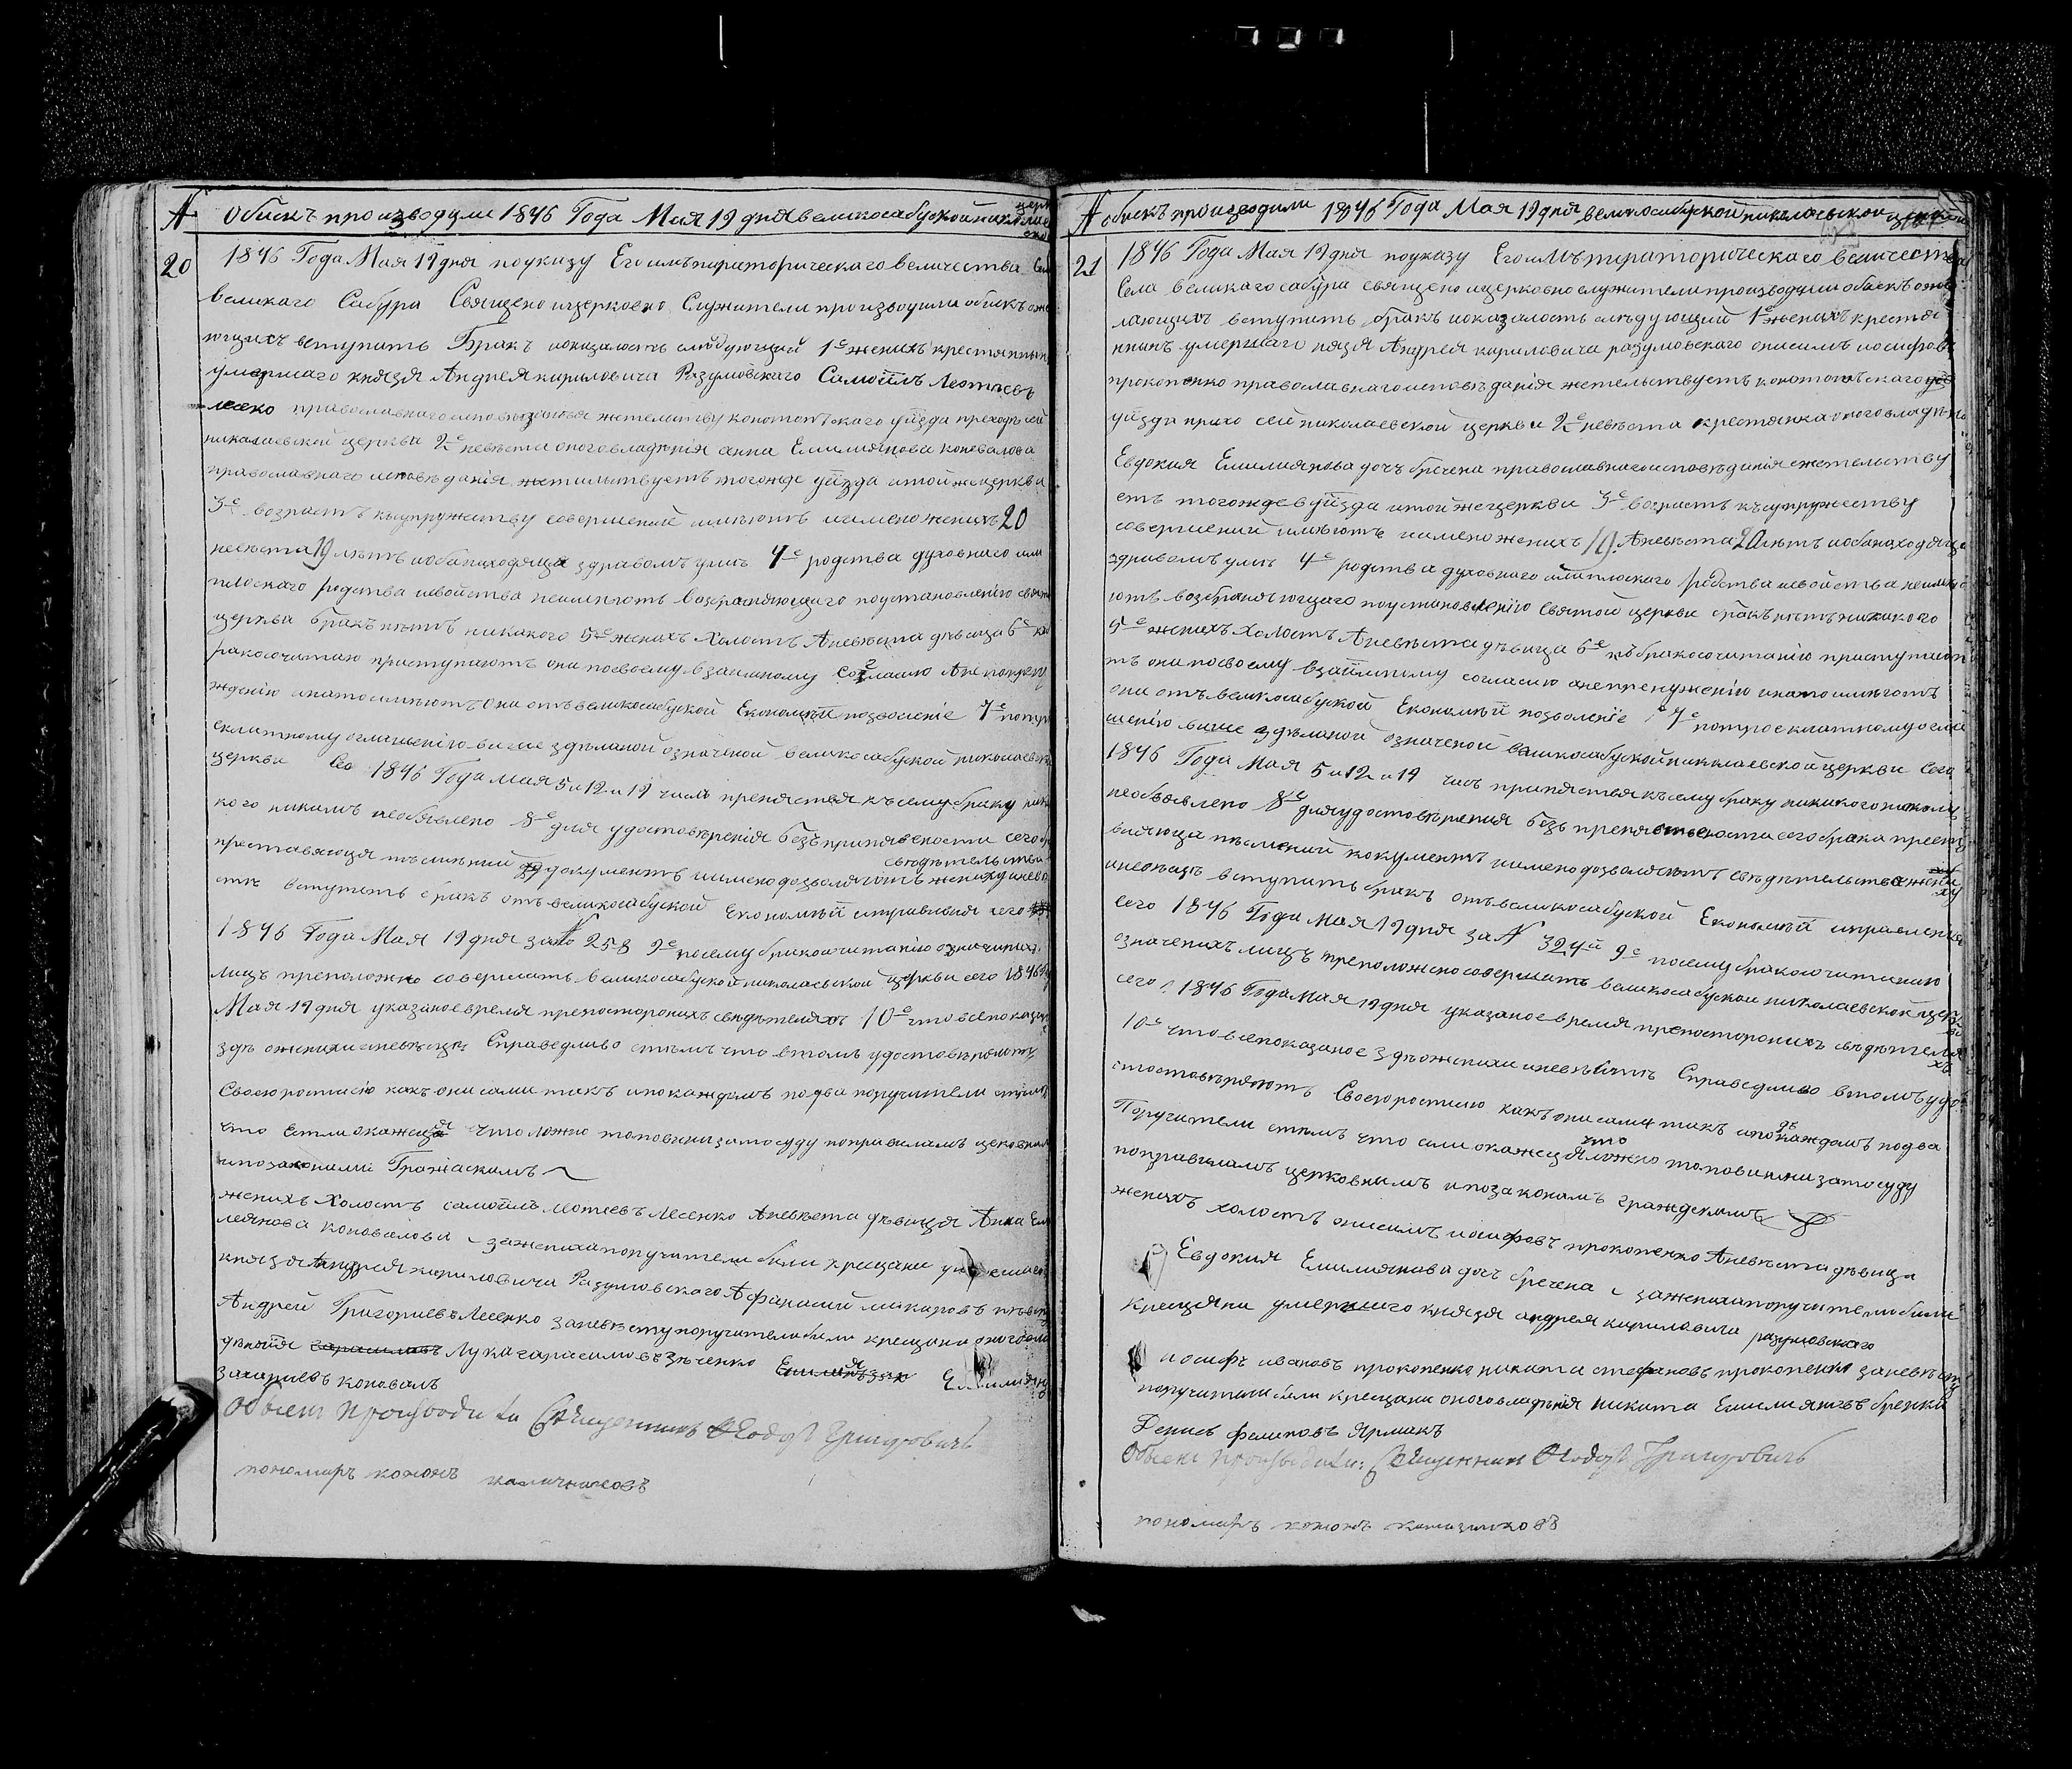 № Обискъ производили 1846 Года Мая 19 дня великосабуской николаевской церк
20 1846 Года Мая 19 дня поуказу Егоимъператорическаго величества Села
великаго Сабура Священо ицерковно Служители производили обискъ ожела
ющихъ вступить Бракъ иоказалость слѣдующий 1е женихъ крестянинъ
умершаго князя Андрея кириловича Разумовскаго Самоилъ Леотиевъ
лесеко православнаго исповѣданія жетельству конотопскаго уѣзда приходъ сей
николаевской церкви 2е невѣста оноговладѣнія анна Емилиянова коновалова
православнаго исповѣданія жительствуетъ тогожде уѣзда итойжецеркви
3е возрастъ къ супружеству совершеной имѣютъ имено женихъ 20
невѣста 19 лѣтъ иобанаходяца здравомъ умѣ 4е родства духовнаго или
плоскаго родства исвойства неимѣютъ возбраняющаго поустановленію святой
церкви бракъ нѣтъ никакого 5е женихъ Холостъ Аневѣста дѣвица 6е къ
ракосочитаю приступаютъ они посвоему взаимному согласию Ане попрену
ждению инатоимѣютъ Они отъ великосабуской Економіи позволеніе 7е потро
екратному оглашенію више здѣланой означеной великосабуской николаевской
церкви Сео 1846 Года мая 5 и 12 и 19 чисъ препяствя къ сему браку ника
кого никимъ необявлено 8е для удостовѣренія безъприпявености сего бр
преставляюця писмений документъ иимено дозволяютъ свѣдѣтельство жениху иневѣ
стѣ вступить бракъ отъ великосабуской Економіи управления сего
1846 Года Мая 19 дня за № 258 9е посему бракосочитанію означиныхъ
лицъ преположно совершить великосабуской николаевской церкви сего 1846 Год
Мая 19 дня указаное время препосторонихъ свѣдѣтеляхъ 10е что всепоказаное
здѣ оженихи иневѣсцѣ Справедливо стѣмъ что втомъ удостовѣряютъ
Своеюростисію какъ они сами такъ ипокаждомъ подва поручители стѣмъ
что Естли окажеця что ложно топовини затосуду поправиламъ цековнымъ
ипозаконами Гражаскимъ
женихъ Холостъ самоилъ леотиевъ Лесенко Аневѣста дѣвиця Анна Еми
леянова коновалова – заженихапоручители били хрещани умершаго
князя Андрея кириловича Разумовскаго Афанасий макаровъ
Андрей Григориевъ Лесенко заневѣсту поручители били крещани оноговла
дѣнія Лука гарасимовъ Зѣченко Емилиянъ
захариевъ коновалъ
Обыскъ производили Священникъ Ѳеодоръ Григоровичъ
пономаръ кононъ калачниковъ
№ обискъ производили 1846 Года Мая 19 дня великосабуской николаевской церкви
21 1846 Года Мая 19 дня поуказу Егоимъператорическаго величества
Села великаго сабура священо ицерковно служители производили обискъ ожеа
лающихъ вступить бракъ иоказалость слѣдующий 1е женихъ крестя
нинъ умершаго нязя Андрея кириловича разумовскаго онисимъ иосифовъ
прокопенко православнаго исповѣданія жетельствуетъ конотопскаго
уѣзда прихо сей николаевской церкви 2е невѣста крестянка оноговладѣнія
Евдокия Емилиянова дочъ бречена православнаго исповѣданія жетельству
етъ тогождевуѣзда итойжецеркви 3е возрастъ къ супружеству
совершений имѣютъ иимено женихъ 19 Аневѣста 20 лѣтъ иобанаходяце
здравомъ умѣ 4е родства духовнаго илиплоскаго родства исвойства неимѣю
ютъ возбраняющаго поустановленію Святой церкви бракъ нѣтъ никакого
5е женихъ холостъ Аневѣста дѣвица 6е къ бракосочитанію приступаю
тъ они посвоему взаимному согласию анепренуженію инатоимѣютъ
они отъ великосабуской Економіи позволеніе 7е потроекратномуогла
шенію више здѣланой означеной великосабускойниколаевскойцеркви Сего
1846 Года Мая 5 и 12 и 19 чисъ припяствя къ сему браку никакого никимъ
необявлено 8е дляудостовѣрения безъ препявственостисегобрака преста
вляюця писмений кокументъ иимено дозволяютъ свѣдѣтельство жени
ху иневѣцѣ вступить бракъ отъ великосабуской Економіи управленія
сего 1846 Года Мая 19 дня за № 324й 9е посему бракосочитанию
означенихъ лицъ преположено совершить великосабуской николаевской церкви
сего 1846 Года Мая 19 дня указаное время препосторонихъ свѣдѣтеля
хъ 10е что всепоказаное здѣоженихи иневѣстѣ Справедливо втомъ удо
стостовѣряютъ Своеюростисю какъ они сами такъ ипокаждомъ подва
Поручители стѣмъ что если окажеця что ложно топовинни затосуду
поправиламъ церковнымъ ипозаконамъ гражденимъ
женихъ холостъ онисимъ иосифовъ прокопенко Аневѣста дѣвица
Евдокия Емилиянова дочъ бречена – заженихапоручители били
крещяни умершаго князя андрея кириловича разумовскаго
иосифъ ивановъ прокопенко никита стефановъ прокопенко заневѣсту
поручители били крещани оноговладѣнія Никита Емилияновъ бренка
Денисъ филиповъ Ярмакъ
Обыскъ производили: Священникъ Ѳеодоръ Григоровичъ
пономаръ кононъ калачниковъ